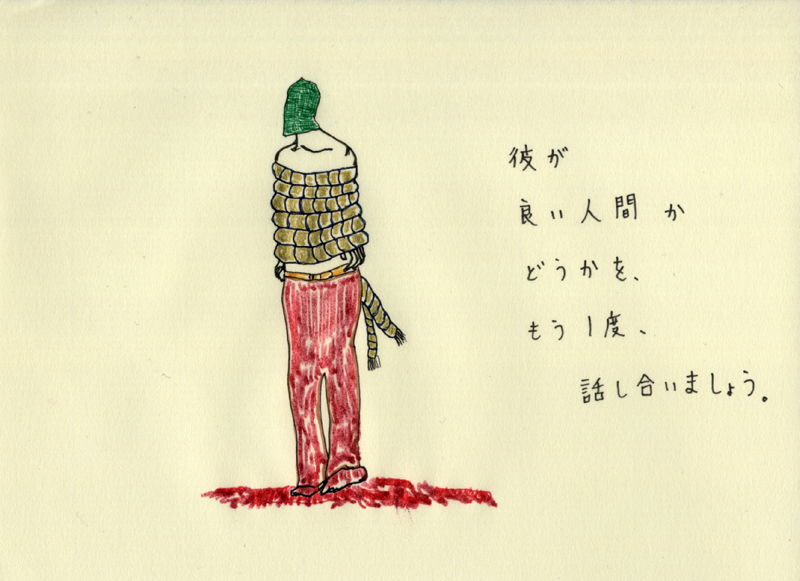 彼が
良い人間か
どうかを、
もう1度、
話し合いましょう。